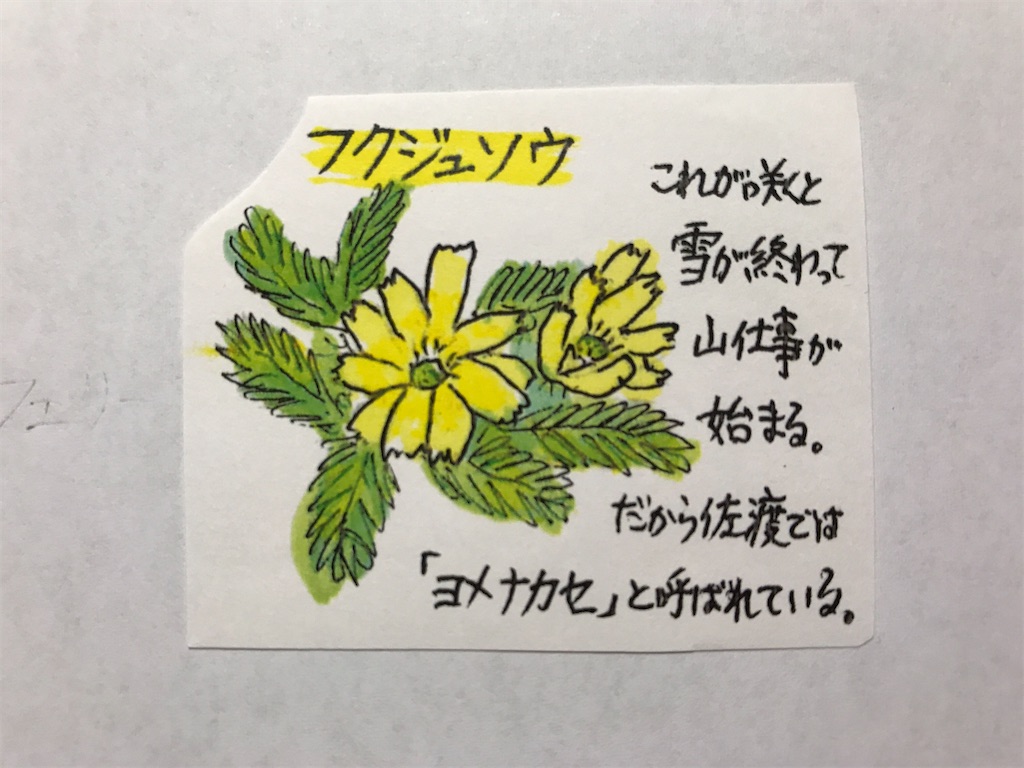 フクジュソウ
これが咲くと
雪が終わって
山仕事が
始まる。
だから佐渡では
「ヨメナカセ」と呼ばれている。